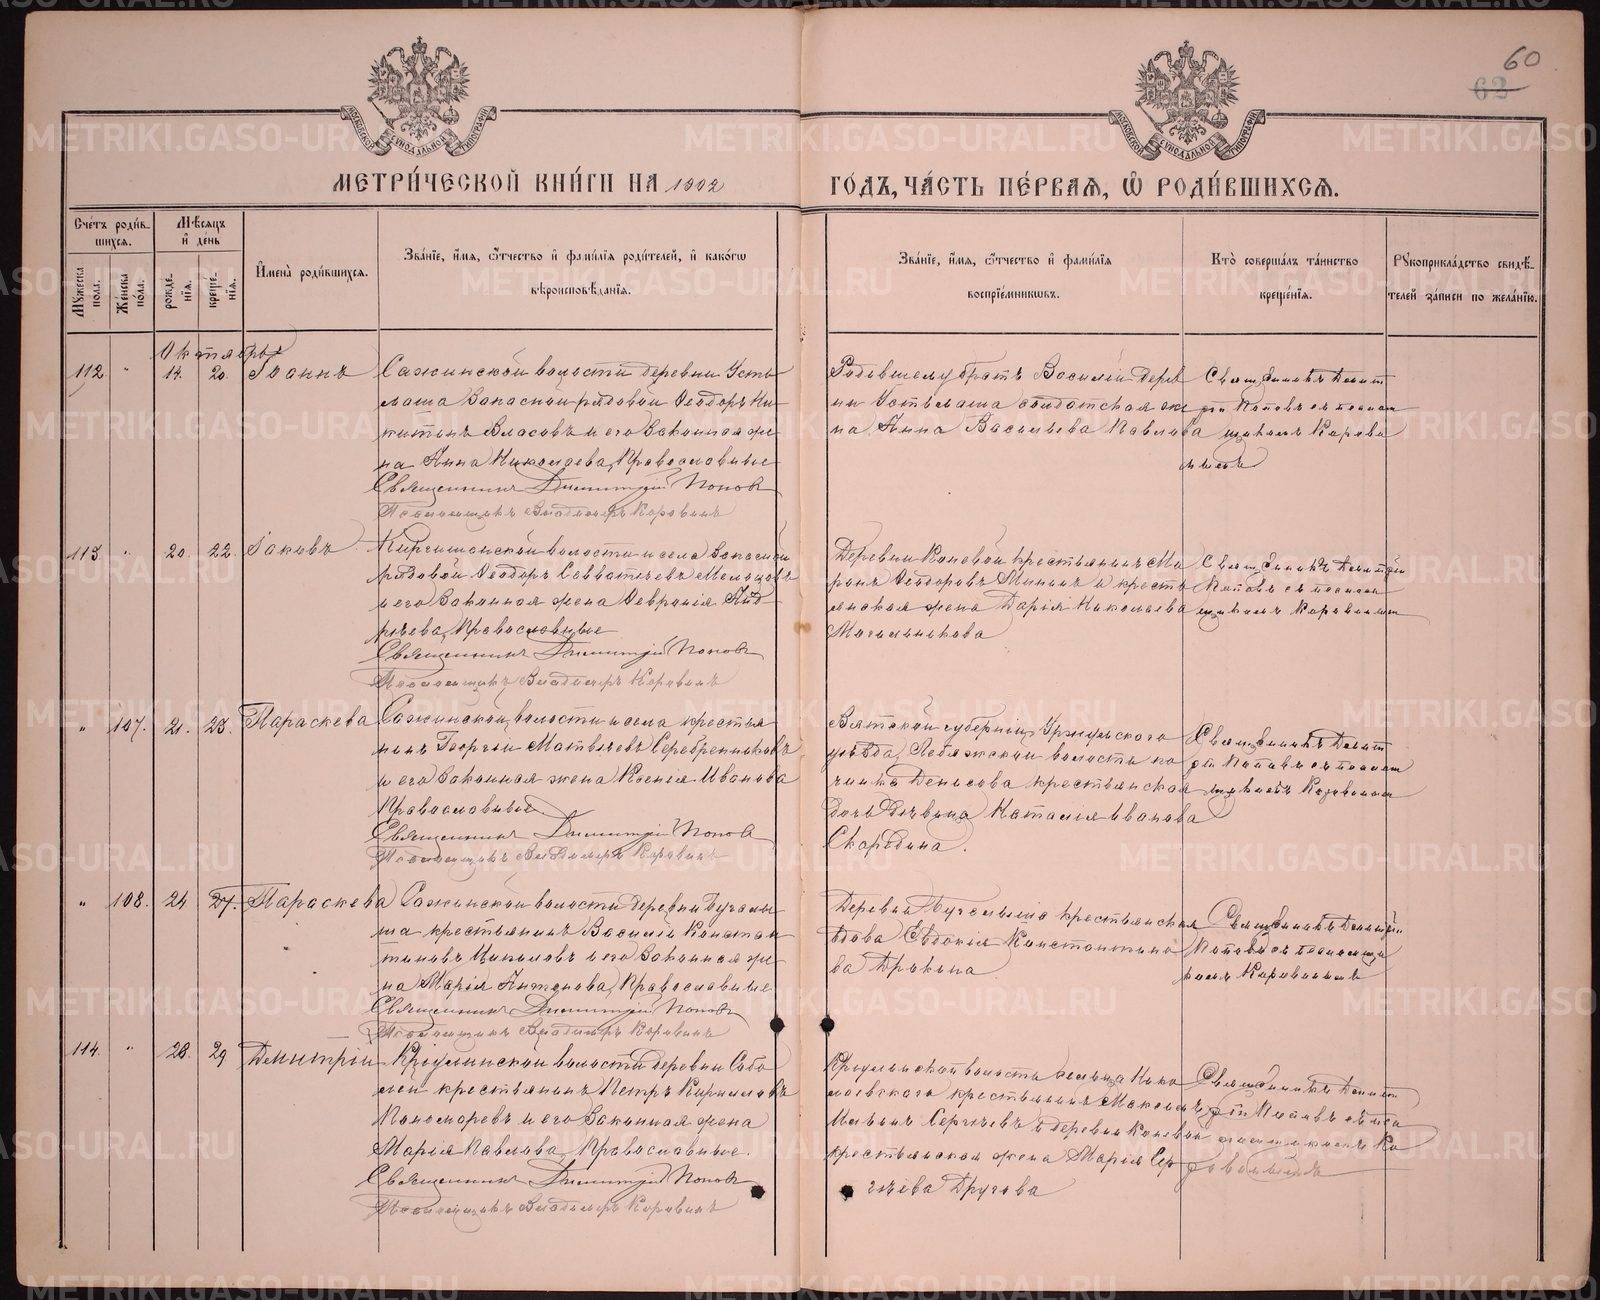 60
63
МОСКОВСКОЙ СУНОДАЛЬНОЙ ТИПОГРАФІИ
МОСКОВСКОЙ СУНОДАЛЬНОЙ ТИПОГРАФІИ
МЕТРИ́ЧЕСКОЙ КНИ́ГИ НА 1902
ГО́ДЪ, ЧА́СТЬ ПЕ́РВАЯ, Ѡ҆ РОДИ́ВШИХСЯ.
Сче́тъ роди́в-
шихся.
Мꙋ́жеска по́ла.
Же́нска по́ла.
Мѣ́сяцъ
и҆ де́нь
рожде-нїя.
креще-нїя.
И҆мена̀ роди́вшихся.
Зва́нїе, и҆́мя, ѻ҆́тчество и҆ фами́лїя роди́телей, и҆ како́гѡ
вѣроисповѣ́данїя.
Зва́нїе, и҆́мя, ѻ҆́тчество и҆ фами́лїя
воспрїе́мникѡвъ.
Кто̀ соверша́лъ та́инство
креще́нїя.
Рꙋкоприкла́дство свидѣ́-
телей за́писи по жела́нїю.
Октябрь
112 " 14. 20. Іоаннъ
Сажинской волости деревни Усть
маша Запасной рядовой Ѳеодоръ Ни
китинъ Власовъ и его законная же
на Анна Николаева, Православные
Священникъ Димитрий Попов
Псаломщикъ Владимиръ Коровинъ
Родившему братъ Василій Дерев
ни Устьмаша солдатская же
на Анна Васильева Павлова
Священникъ Димит
рій Поповъ съ псалом
щикомъ Корови
нымъ
113. " 20. 22. Іаковъ
волости и села Запасный
рядовой Ѳеодоръ Савватѣевъ
и его законная жена Февронія Анд
рѣева, Православные
Священникъ Димитрий Попов
Псаломщикъ Владимиръ Коровинъ
Деревни Коневой крестьянинъ Ми
ронъ Ѳеодоровъ Мининъ и кресть
янская жена Дарія Николаева
Могильникова
Священникъ Димитрій
Поповъ съ псалом
щикомъ Коровинымъ
" 107. 21. 23. Параскева
Сажинской волости и села крестья
нинъ Георгій Матвѣевъ Серебренниковъ
и его законная жена Ксенія Иванова
Православные.
Священникъ Димитрій Попов
Псаломщикъ Владимиръ Коровинъ
Вятской губерніи, Уржумского
уѣзда, Лебяжской волости по
чинка Денисова крестьянская
дочь дѣвица Наталія Иванова
Скородина.
Священникъ Димит
рій Поповъ съ псалом
щикомъ Коровиным
" 108. 24 27. Параскева
Сажинской волости деревни Бугалы
ша крестьянинъ Василій Констан
тиновъ и его законная же
на Марія Антонова, Православные
Священникъ Димитрій Попов
Псаломщикъ Владимиръ Коровинъ
Деревни Бугалыша крестьянская
вдова Евдокія Константино
ва
Священникъ Димитрій
Поповъ съ псаломщи
комъ Коровинымъ
114. " 28. 29 Димитрій
волости деревни Собо
лей крестьянинъ Петръ Кирилловъ
Пономоревъ и его законная жена
Марія Павлова, Православные.
Священникъ Димитрій Попов
Псаломщикъ Владимиръ Коровинъ
волости Нико
лаевского крестьянинъ Максимъ
Сергѣевъ и деревни Коневой
крестьянская жена Марія Сер
гѣева Другова
Священникъ Димит
рій Поповъ съ пса
ломщикомъ Ко
ровинымъ
METRIKI.GASO-URAL.RU